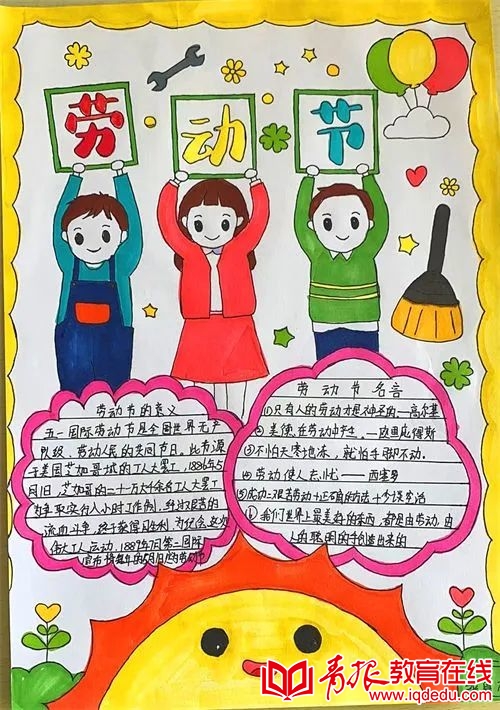 劳动节
劳动节的意义
五一国际劳动节是全世界无产
阶级、劳动人民的共同节日。此节源
于美国芝加哥城的工人大罢工,1886年5
月1日,芝加哥的二十一万六千余名工人大罢
工为争取实行八小时工作制,
流血斗争,终于获得胜利,为纪念这次
伟大工人运动,1889年7月第一国际
宣布将每年的5月1日
劳动节名言
①只有人的劳动才是神圣的——高尔基
②美便在劳动中产生。
③不怕天寒地冻,就怕手脚不动。
④劳动使人忘忧——西塞罗
⑤成功=艰苦劳动+正确的方法+少说空话
⑥我们世界上最美好的东西,都是由劳动,由
人的聪明的手创造出来的
青报教育在线
www.iqdedu.com